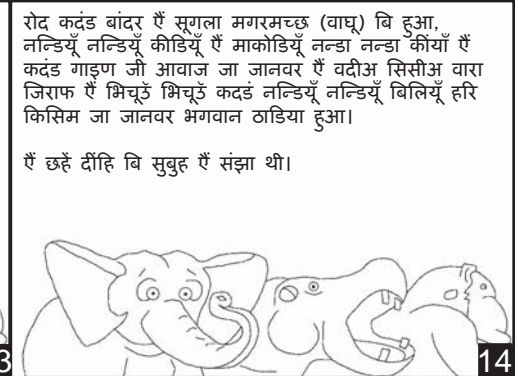 रोद कदंड बांदर ऐं सूगला मगरमच्छ (वाघू) बि हुआ,
नन्डियूँ नन्डियूँ कीडियूँ ऐं माकोडियूँ नन्डा नन्डा कींयाँ ऐं
कदंड गाइण जी आवाज जा जानवर ऐं वदीअ सिसीअ वारा
जिराफ ऐं भिचूउँ भिचूउँ कदडं नन्डियूँ नन्डियूँ बिलियूँ हरि
किसिम जा जानवर भगवान ठाडिया हुआ।
ऐं छहें दींहि बि सुबुह ऐं संझा थी।
3
14